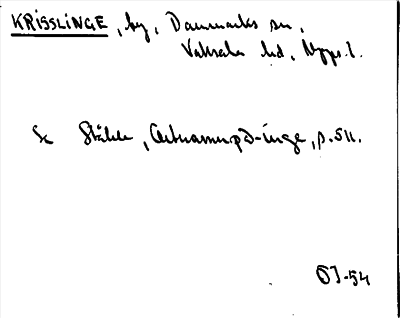 KRISSLINGE, by, Danmarks sn,
Vaksala hd, Uppl.
Se Ståhle, Ortnamnen på -inge, p. 511.
OJ-54